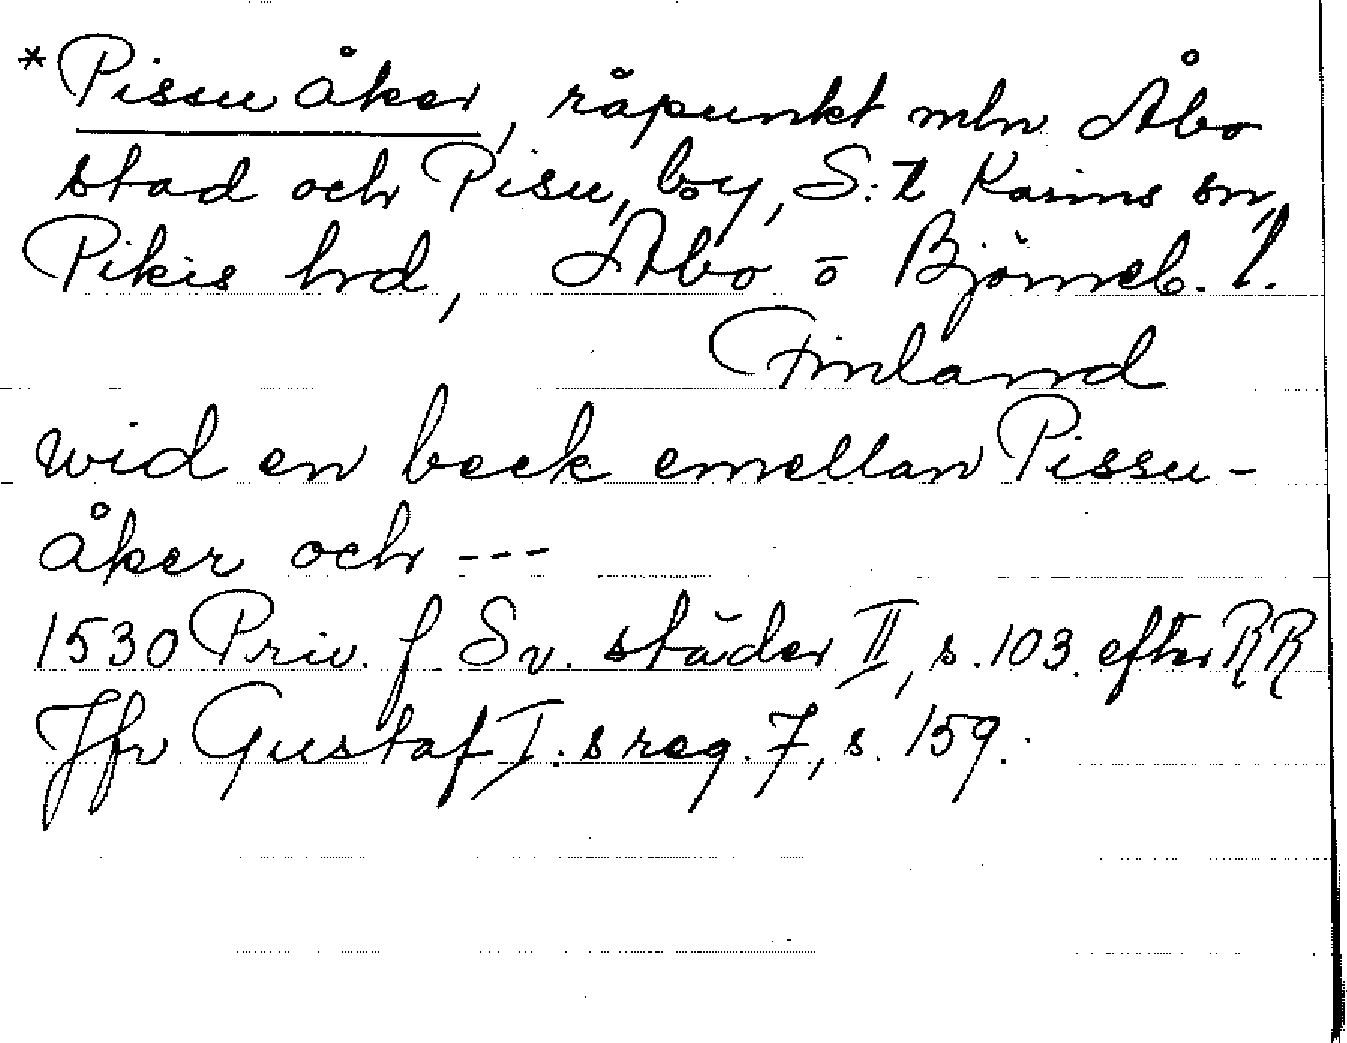 *Pissu åker, råpunkt mln Åbo
stad och Pisu, by, S:t Karins sn,
Pikis hrd, Åbo o Björneb. l.
Finland
wid en beck emellan Pissu-
åker och ---
1530 Priv. f Sv. städer II, s. 103. efter RR
Jfr Gustaf I:s reg. 7, s. 159.